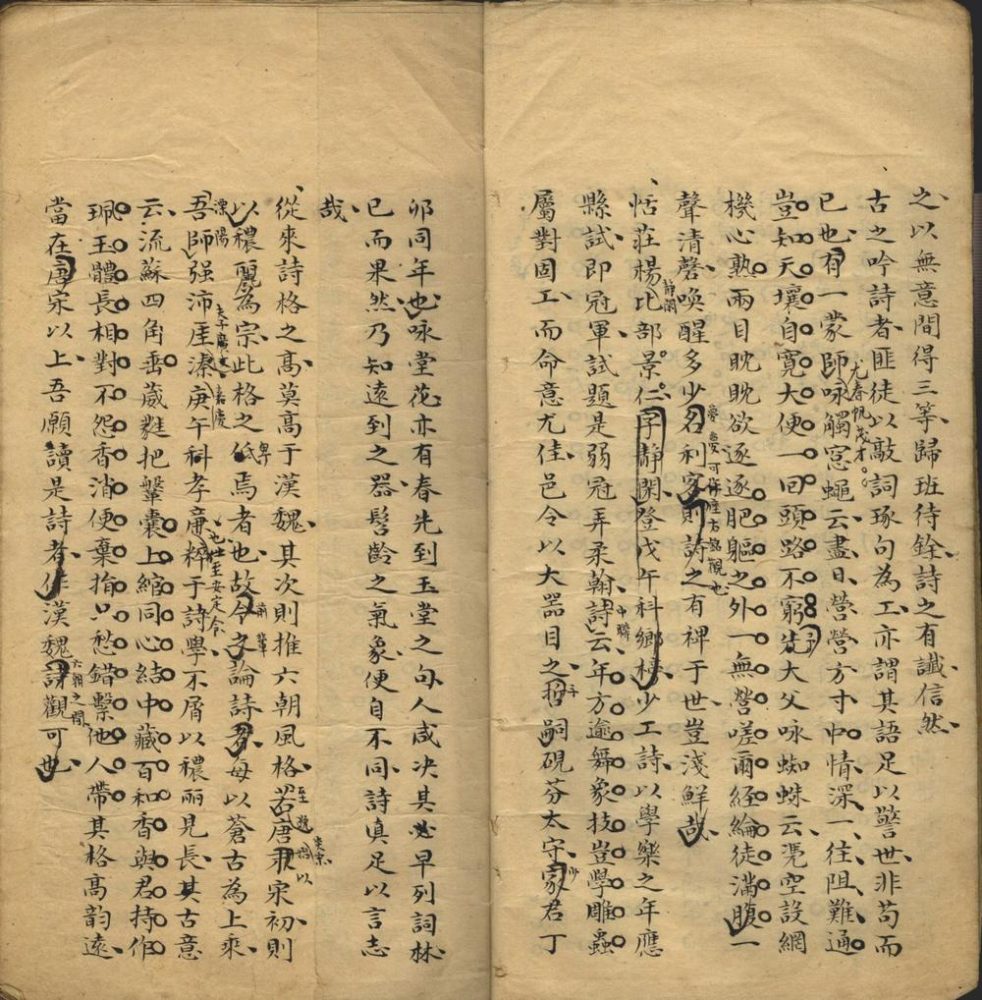 之以無意間得三等歸班待銓詩之有讖信然
古之吟詩者匪徒以敲詞琢句為工亦謂其語足以警世非苟而
已也有一蒙師咏觸窓蠅云盡日營營方寸中情深一往阻難通
尤春帆茂才
豈知天壤自寬大便一回頭路不窮先大父咏蜘蛛云凴空設網
機心熟兩目眈眈欲逐逐肥軀之外一無營嗟爾經綸徒滿腹一
聲清磬喚醒多少名利客則詩之有裨于世豈淺鮮哉
夢覺可作座右銘觀也
恬莊楊比部景仁字靜閑登戊午科鄉榜少工詩以學樂之年應
靜閑
縣試即冠軍試題是弱冠弄柔翰詩云年方逾舞象技豈學雕蟲
中聯
屬對固工而命意尤佳邑令以大器目之哲嗣硯芬太守家君丁
子
卯同年也咏堂花亦有春先到玉堂之句人咸决其必早列詞林
已而果然乃知遠到之器髫齡之氣象便自不同詩真足以言志
哉
從來詩格之高莫高于漢魏其次則推六朝風格若唐末宋初則
以穠麗為宗此格之低焉者也故今之論詩者每以蒼古為上乘
卑
吾師强沛厓溱庚午科孝廉粹于詩學不屑以穠丽見長其古意
溧陽
夫子廣
嘉慶
也世至安定令
云流蘇四角垂葳蕤把鞶囊上綰同心結中藏百和香與君持作
珮玉體長相對不怨香消便棄捐只愁錯繫他人帶其格高韵遠
當在唐宋以上吾願讀是詩者作漢魏詩觀可也
六朝之間